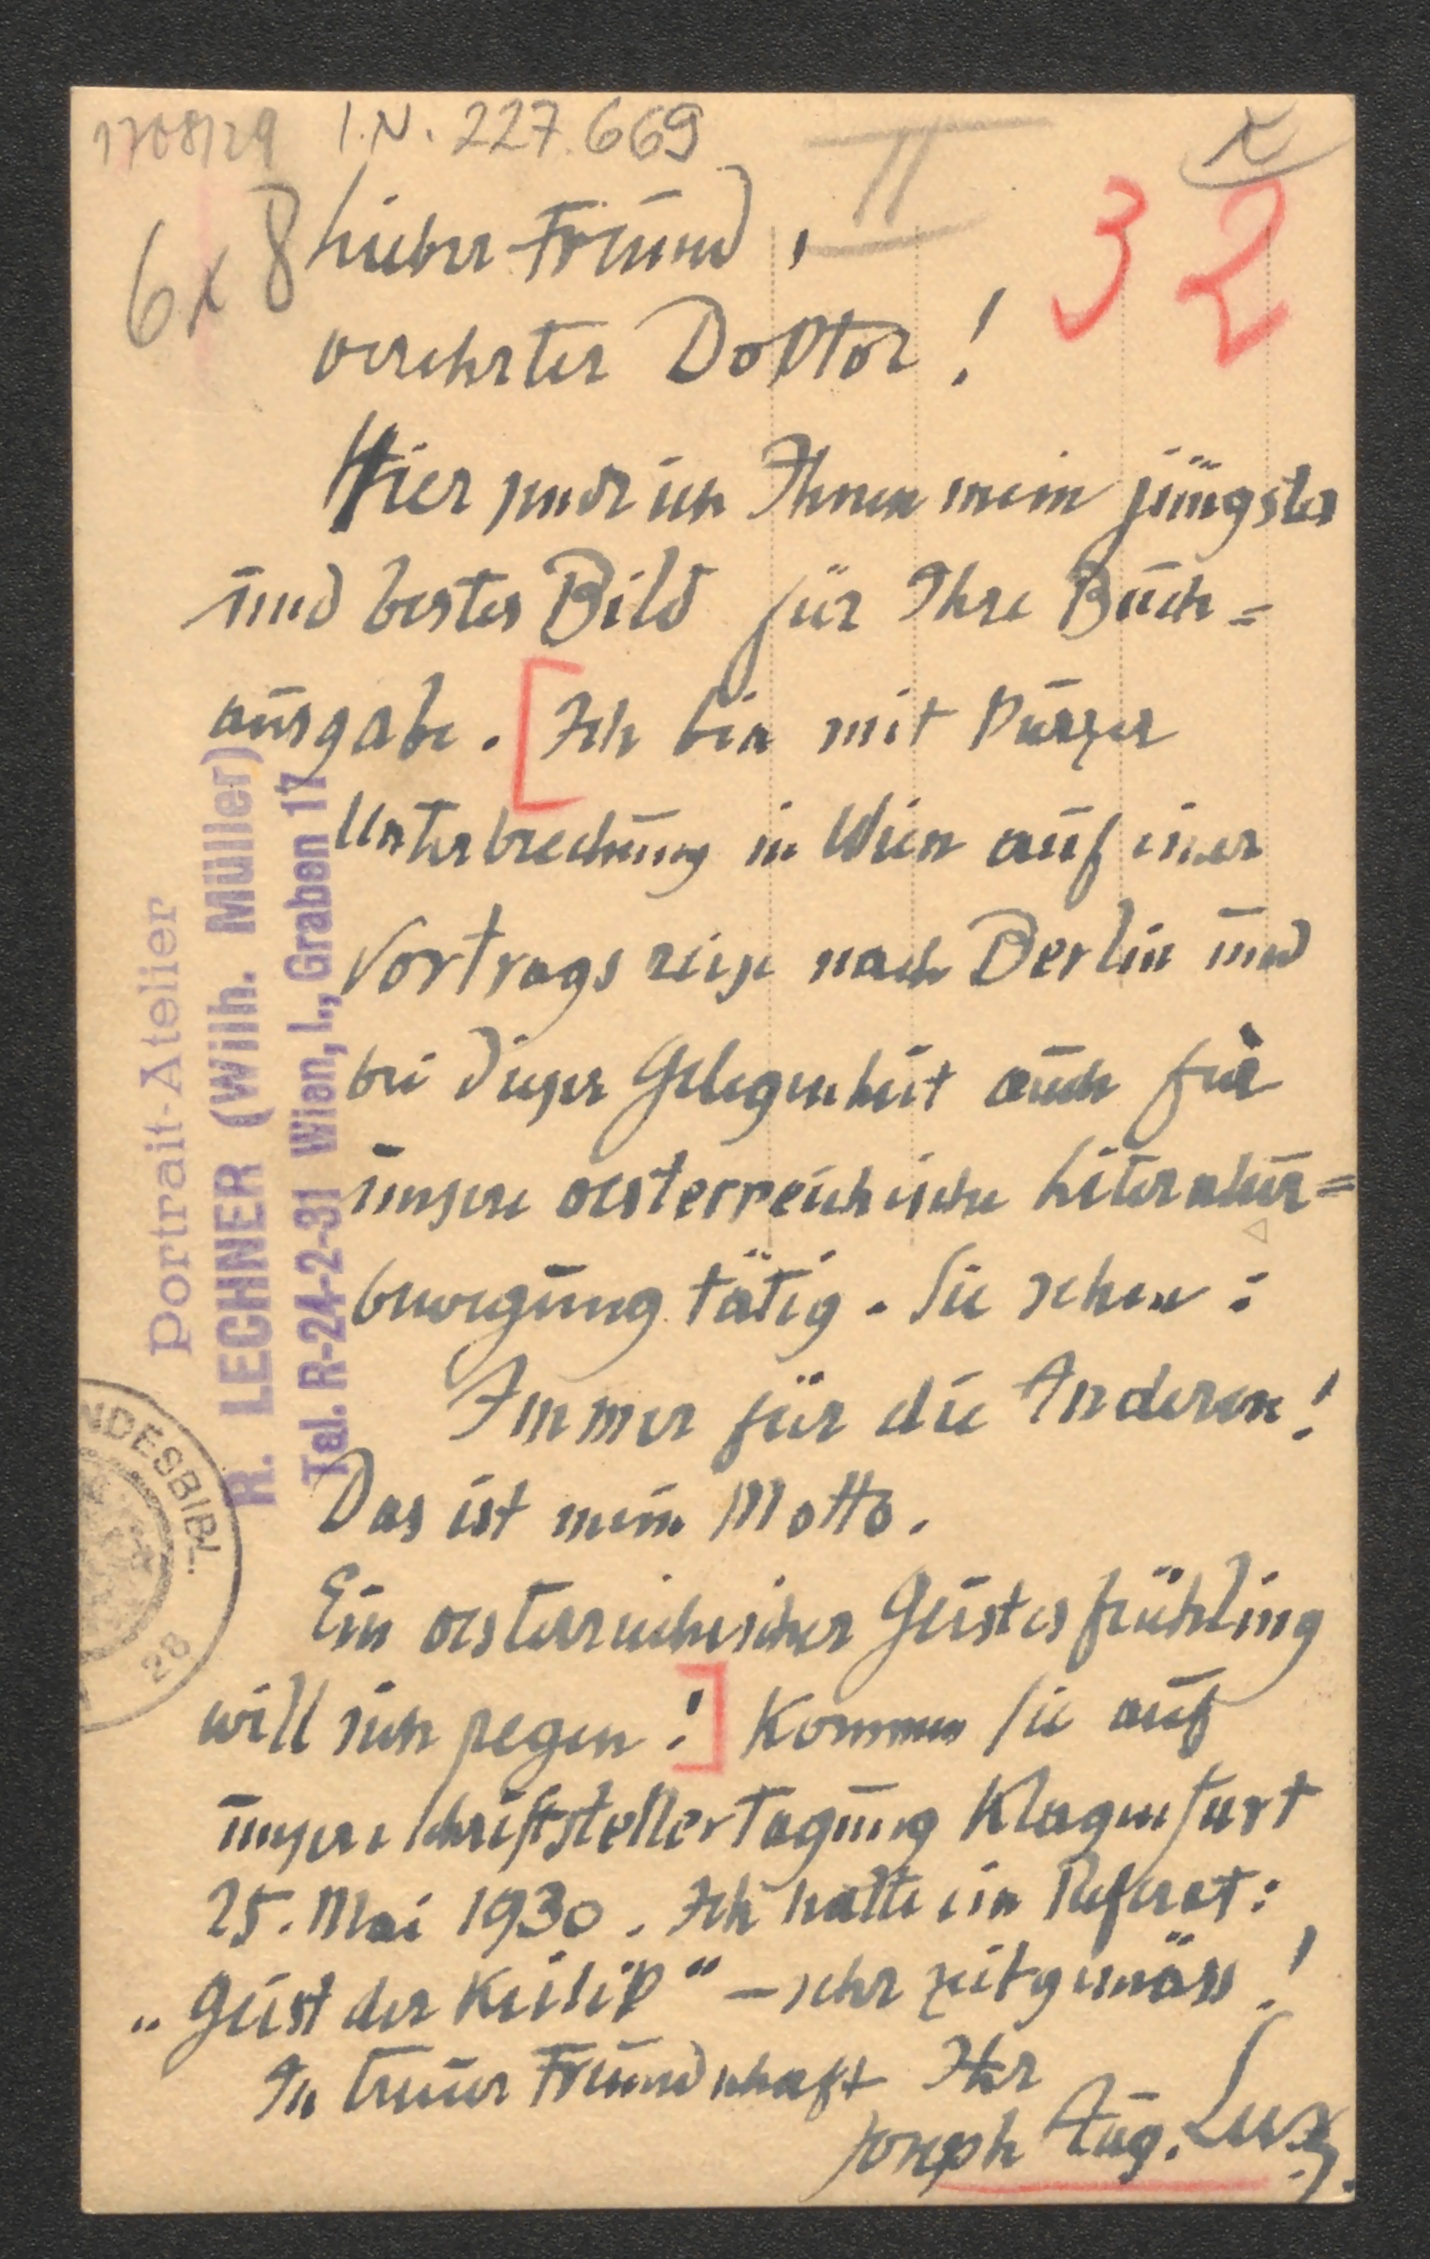 1708/29 I.N. 227.669
6x8
32
Lieber Freund,
verehrter Doktor!
Hier send ich Ihnen mein jüngstes
und bestes Bild für Ihre Buch=
ausgabe. [Ich bin mit kurzer
Unterbrechung in Wien auf einer
Vortragsreise nach Berlin und
bei dieser Gelegenheit auch für
unsere oesterreichische Literatur=
bewegung tätig. Sie sehen:
Immer für die Anderen!
Das ist mein Motto.
Ein oesterreichischer Geistesfrühling
will sich regen!] Kommen Sie auf
unsere Schriftstellertagung Klagenfurt
25. Mai 1930. Ich halte ein Referat:
„Geist der Kritik" – sehr zeitgemäss!
In treuer Freundschaft Ihr
Joseph Aug. Lux.
Portrait-Atelier
R. LECHNER (Wilh. Müller)
Tel. R-24-2-31 Wien, I., Graben 17
NDESBIBL.
28